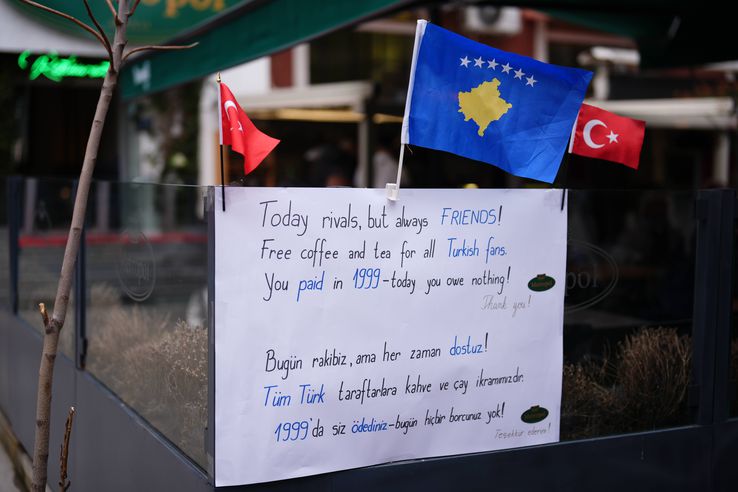 Today rivals, but always FRIENDS!
Free coffee and tea for all Turkish fans.
You paid in 1999-today you owe nothing!
Thank you!
Bugün rakibiz, ama her zaman dostuz!
Tüm Türk taraftarlara kahve ve çay ikramımızdır.
1999'da siz ödediniz-bugün hiçbir borcunuz yok!
Teşekkür ederim!